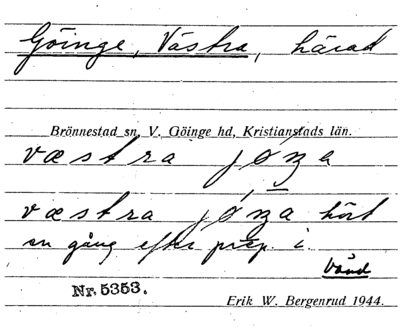 Göinge, Västra, härad
Brönnestad sn, V. Göinge hd, Kristianstads län.
væstra jøṉa
væstra jøṉa hört
en gång efter prep. i.
Vänd
Nr. 5353.
Erik W. Bergenrud 1944.